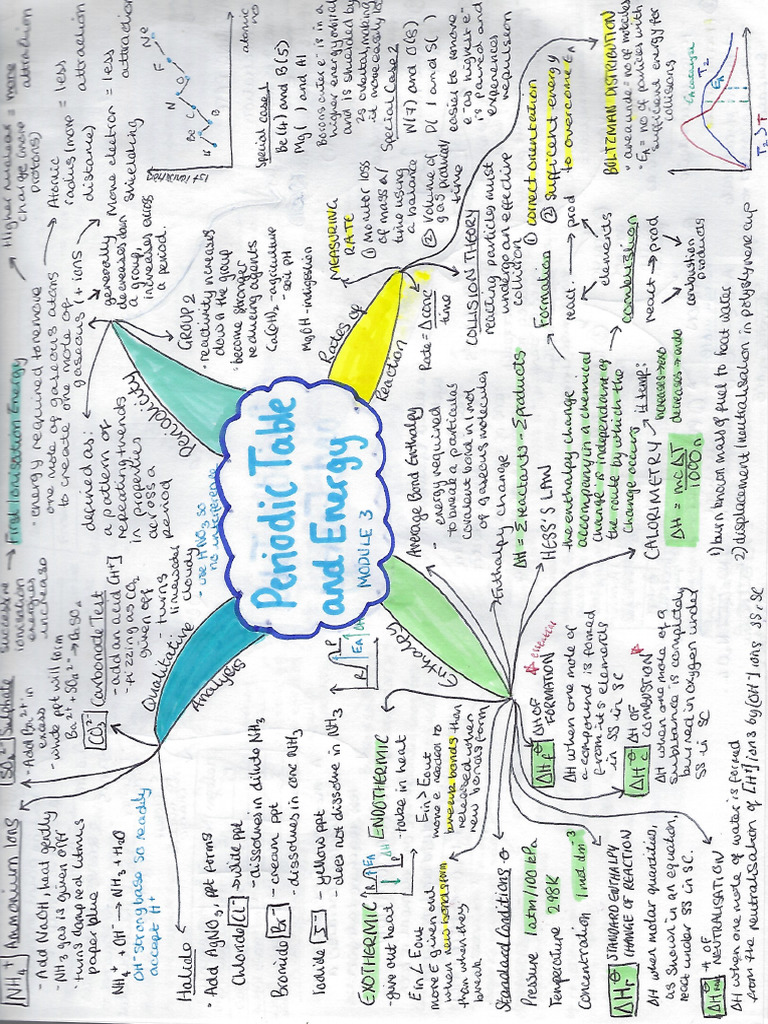 Periodic Table
and Energy
MODULE 3
Qualitative
Analysis
NH4+ Ammonium Ions
- Add NaOH, heat gently
- NH3 gas is given off
- turns damp red litmus
paper blue
NH4+ + OH- → NH3 + H2O
OH- strong base so readily
accept H+
SO4 2- Sulphate
- Add Ba2+ in
excess
- white ppt will form
Ba2+ + SO4 2- → BaSO4
CO3 2- Carbonate Test
- add an acid [H+]
- fizzing as CO2
given off
- turns
limewater
cloudy
- use HNO3 so
no interference
Halide
• Add AgNO3, ppt forms
Chloride Cl- → white ppt
- dissolves in dilute NH3
Bromide Br- - cream ppt
- dissolves in conc NH3
Iodide I- - yellow ppt
- does not dissolve in NH3
Periodicity
defined as:
a pattern of
repeating trends
in properties
across a
period
First Ionisation Energy
• energy required to remove
one mole of gaseous atoms
to create one more of
gaseous 1+ ions
successive
ionisation
energies
increase
generally
decreases down
a group,
increases across
a period.
Higher nuclear = more
charge (more attraction
protons)
Atomic = less
radius (more attraction
distance)
More electron = less
shielding attraction
1st ionisation
atomic
no
Li
Be
B
C
N
O
F
Ne
Special case 1
Be(4) and B(5)
Mg( ) and Al
Borons outer e- is in a
higher energy orbital
and is shielded by
2s orbital, making
it more easily lost
Special Case 2
N(7) and O(8)
P( ) and S( )
easier to remove
e- as highest e-
is paired and
experiences
repulsion
GROUP 2
• reactivity increases
down the group
• become stronger
reducing agents
Ca(OH)2 - agriculture
- soil pH
MgOH - indigestion
Rates of
Reaction
MEASURING
RATE
① Monitor loss
of mass w/
time using
a balance
② Volume of
gas produced/
time
Rate = Δconc
time
COLLISION THEORY
reacting particles must
undergo an effective
collision
① correct orientation
② sufficient energy
to overcome EA
BOLTZMAN DISTRIBUTION
• area under = no of molecules
• EA = no of particles with
sufficient energy for
collisions
EA catalyst
EA
T2
T1
T2 > T1
Enthalpy
Average Bond Enthalpy
- energy required
to break a particular
covalent bond in 1 mol
of gaseous molecules
Enthalpy change
ΔH = Σreactants - Σproducts
HESS'S LAW
the enthalpy change
accompanying a chemical
change is independent of
the route by which the
change occurs
Formation
react. → prod
elements
combustion
react → prod
combustion
products
CALORIMETRY
if temp:
increases → exo
decreases → endo
ΔH = mcΔT
1000n
1) burn known mass of fuel to heat water
2) displacement / neutralisation in polystyrene cup
ENDOTHERMIC
- take in heat
Ein > Eout
more E needed to
break bonds than
released when
new bonds form
EXOTHERMIC
- give out heat
Ein < Eout
more E given out
when new bonds form
than when they
break
Standard Conditions ⊖
Pressure 1atm/100 kPa
Temperature 298K
Concentration 1mol dm-3
ΔHf⊖ ΔH OF
FORMATION
* elements
ΔH when one mole of
a compound is formed
from its elements
in SS in SC
ΔHc⊖ ΔH OF
COMBUSTION
ΔH when one mole of a
substance is completely
burned in oxygen under
SS in SC
ΔHr⊖ STANDARD ENTHALPY
CHANGE OF REACTION
ΔH when molar quantities,
as shown in an equation,
react under SS in SC.
ΔHneut⊖ H OF
NEUTRALISATION
ΔH when one mole of water is formed
from the neutralisation of [H+] ions by [OH-] ions SS, SC